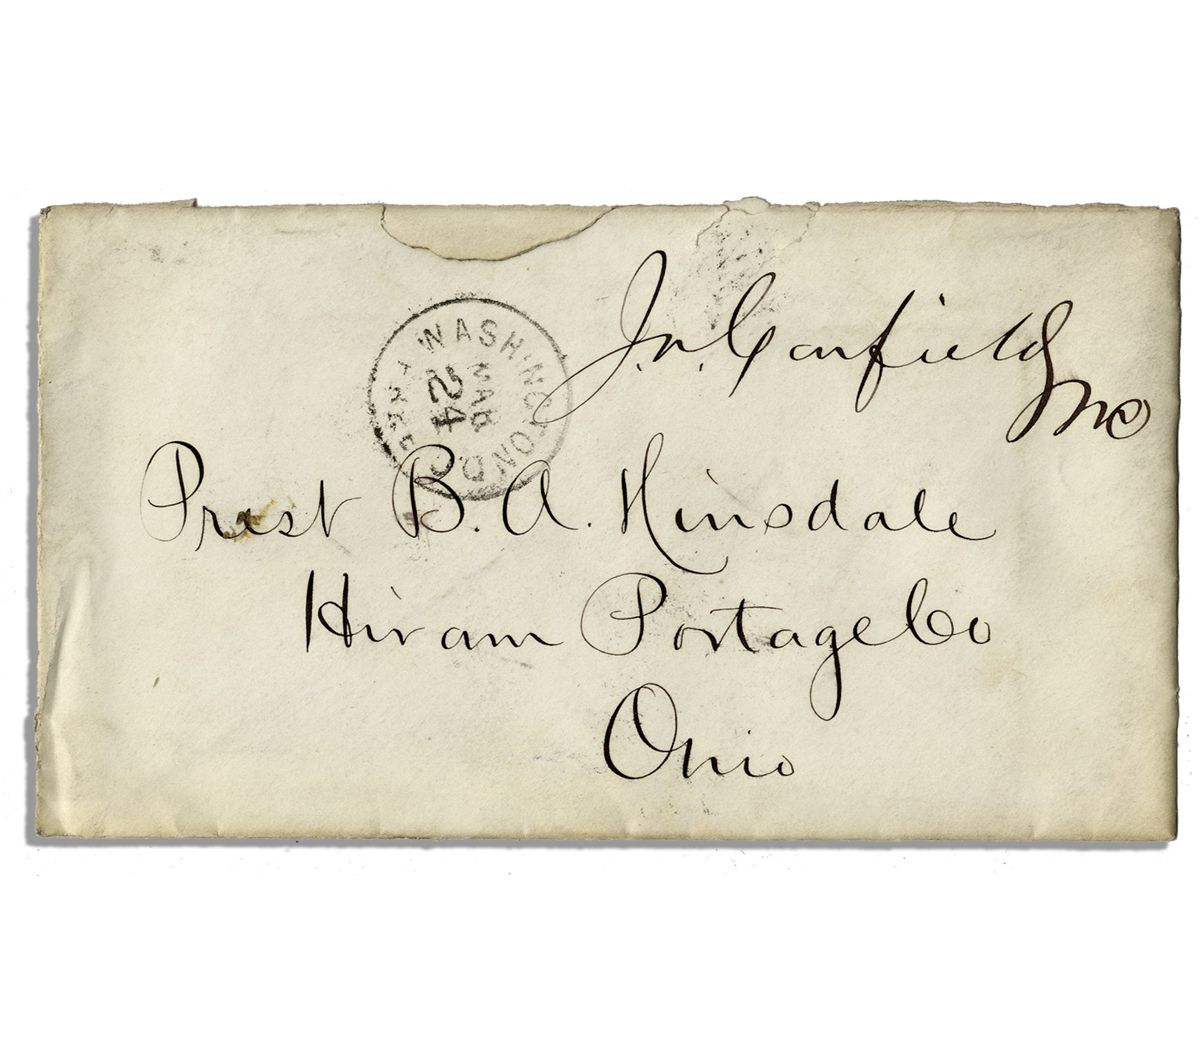 J. A. Garfield
MC
WASHINGTON D.C.
MAR
24
FREE
Prest B. A. Hinsdale
Hiram Portage Co
Ohio